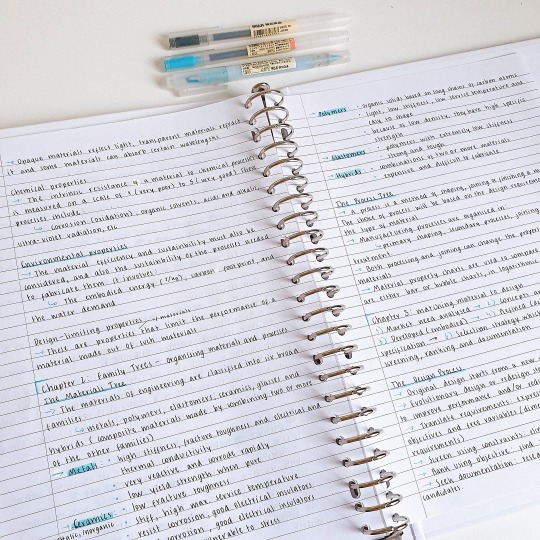 → Opaque materials reflect light, transparent materials refract
it and some materials can absorb certain wavelengths
Chemical properties
→ The intrinsic resistance of a material to chemical processes
is measured on a scale of 1 (very poor) to 5 (very good). These
processes include
↳ corrosion (oxidation), organic solvents, acids and alkalis,
ultra-violet radiation, etc
Environmental properties
→ The material efficiency and sustainability must also be
considered, and also the sustainability of the processes needed
to fabricate them. It involves:
↳ The embodied energy, carbon footprint, and
the water demand
Design-limiting properties
→ These are properties that limit the performance of a
material made out of such materials
Chapter 2: Family Trees - organising materials and processes
The Materials Tree
→ The materials of engineering are classified into six broad
families
↳ metals, polymers, elastomers, ceramics, glasses and
hybrids (composite materials made by combining two or more
of the other families)
→ Metals · high stiffness, fracture toughness and electrical and
thermal conductivity
· very reactive and corrode rapidly
· low yield strength when pure
→ Ceramics · low fracture toughness
· stiff, high max service temperature
· resist corrosion, good electrical insulators
Polymers · organic solids based on long chains of carbon atoms
· light, low stiffness, low service temperature and
easy to shape
· because of low density, they have high specific
strength
Elastomers · polymers with extremely low stiffness
· strong and tough
Hybrids · combinations of two or more materials
· expensive and difficult to fabricate
The Process Tree
→ A process is a method of shaping, joining or finishing a
The choice of process will be based on the design
the type of material
→ Manufacturing processes are organised in:
↳ primary shaping, secondary process, joining
treatment
→ Both processing and joining can change the
materials
→ Material property charts are used to
are either bar or bubble charts, on logarithmic
Chapter 3: matching material to design
1) Market need analysed → 2) concepts
3) Developed (embodied) → 4) Refined
specification → 5) Selection strategy which
screening, ranking and documentation
The Design Process
→ Original design starts from a new
→ Evolutionary design or redesign
to improve performance and/or
→ Translate requirements
objectives and free variables
requirements)
→ Screen using constraints
→ Rank using objective, find
→ Seek documentation,
candidates